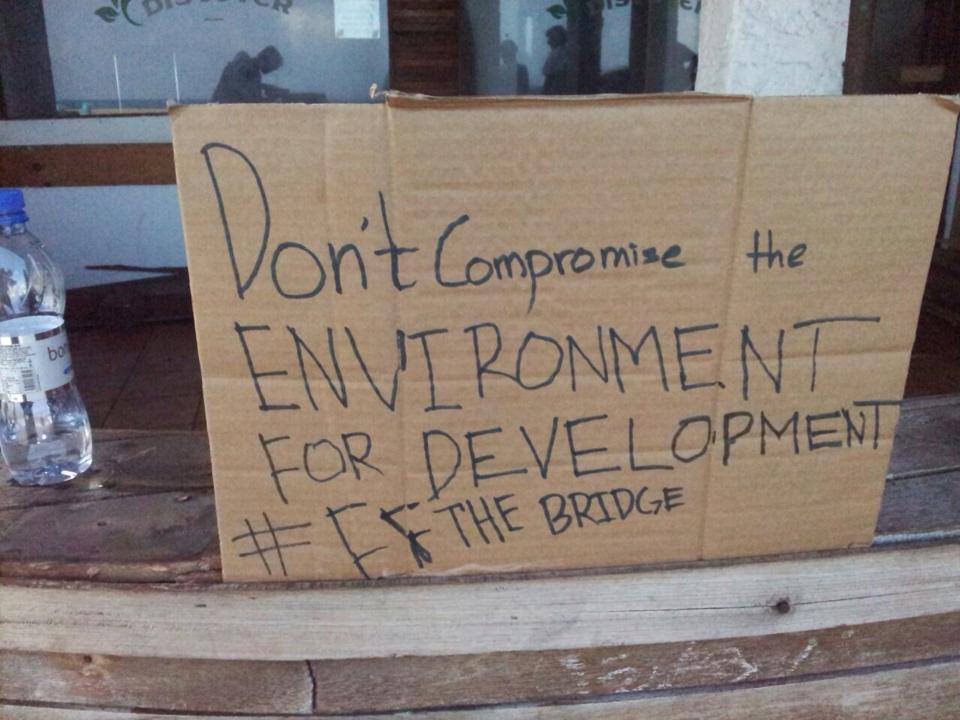 DISCOVER
Don't Compromise the
ENVIRONMENT
FOR DEVELOPMENT
# EF THE BRIDGE
bon